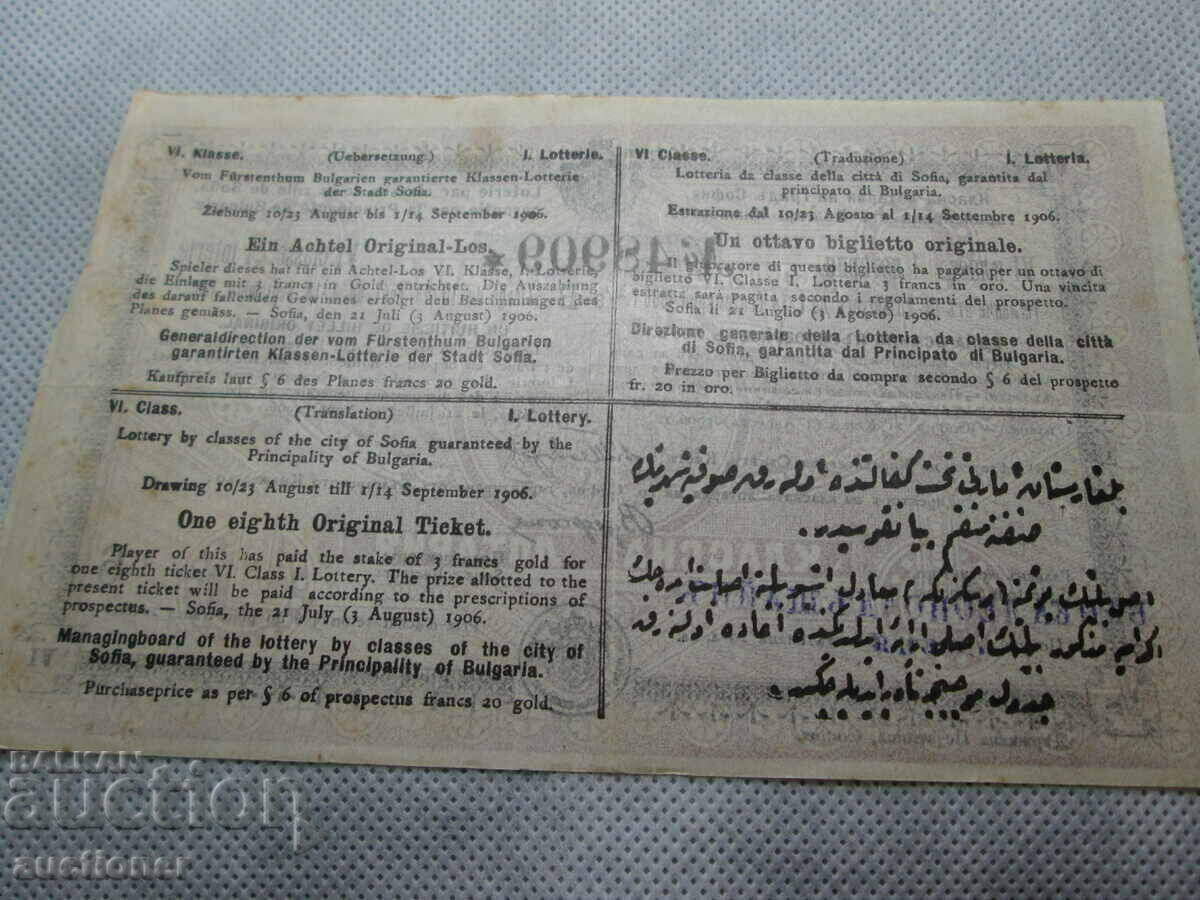 VI. Klasse. (Uebersetzung.) I. Lotterie.
Vom Fürstenthum Bulgarien garantierte Klassen-Lotterie
der Stadt Sofia.
Ziehung 10/23 August bis 1/14 September 1906.
Ein Achtel Original-Los.
Spieler dieses hat für ein Achtel-Los VI. Klasse, I. Lotterie,
die Einlage mit 3 francs in Gold entrichtet. Die Auszahlung
des darauf fallenden Gewinnes erfolgt den Bestimmungen des
Planes gemäss. — Sofia, den 21 Juli (3 August) 1906.
Generaldirection der vom Fürstenthum Bulgarien
garantirten Klassen-Lotterie der Stadt Sofia.
Kaufpreis laut § 6 des Planes francs 20 gold.
VI Classe. (Traduzione) I. Lotteria.
Lotteria da classe della città di Sofia, garantita dal
principato di Bulgaria.
Estrazione dal 10/23 Agosto al 1/14 Settembre 1906.
Un ottavo biglietto originale.
Il giuocatore di questo biglietto ha pagato per un ottavo di
biglietto VI. Classe I. Lotteria 3 francs in oro. Una vincita
estratta sarà pagata secondo i regolamenti del prospetto.
Sofia li 21 Luglio (3 Agosto) 1906.
Direzione generale della Lotteria da classe della città
di Sofia, garantita dal Principato di Bulgaria.
Prezzo per Biglietto da compra secondo § 6 del prospetto
fr. 20 in oro.
VI. Class. (Translation) I. Lottery.
Lottery by classes of the city of Sofia guaranteed by the
Principality of Bulgaria.
Drawing 10/23 August till 1/14 September 1906.
One eighth Original Ticket.
Player of this has paid the stake of 3 francs gold for
one eighth ticket VI. Class I. Lottery. The prize allotted to the
present ticket will be paid according to the prescriptions of
prospectus. — Sofia, the 21 July (3 August) 1906.
Managingboard of the lottery by classes of the city of
Sofia, guaranteed by the Principality of Bulgaria.
Purchaseprice as per § 6 of prospectus francs 20 gold.
بلغارستان امارتی تحت كفالتنده اوله رق صوفیه شهرینك
BALKAN
auction
auctioner